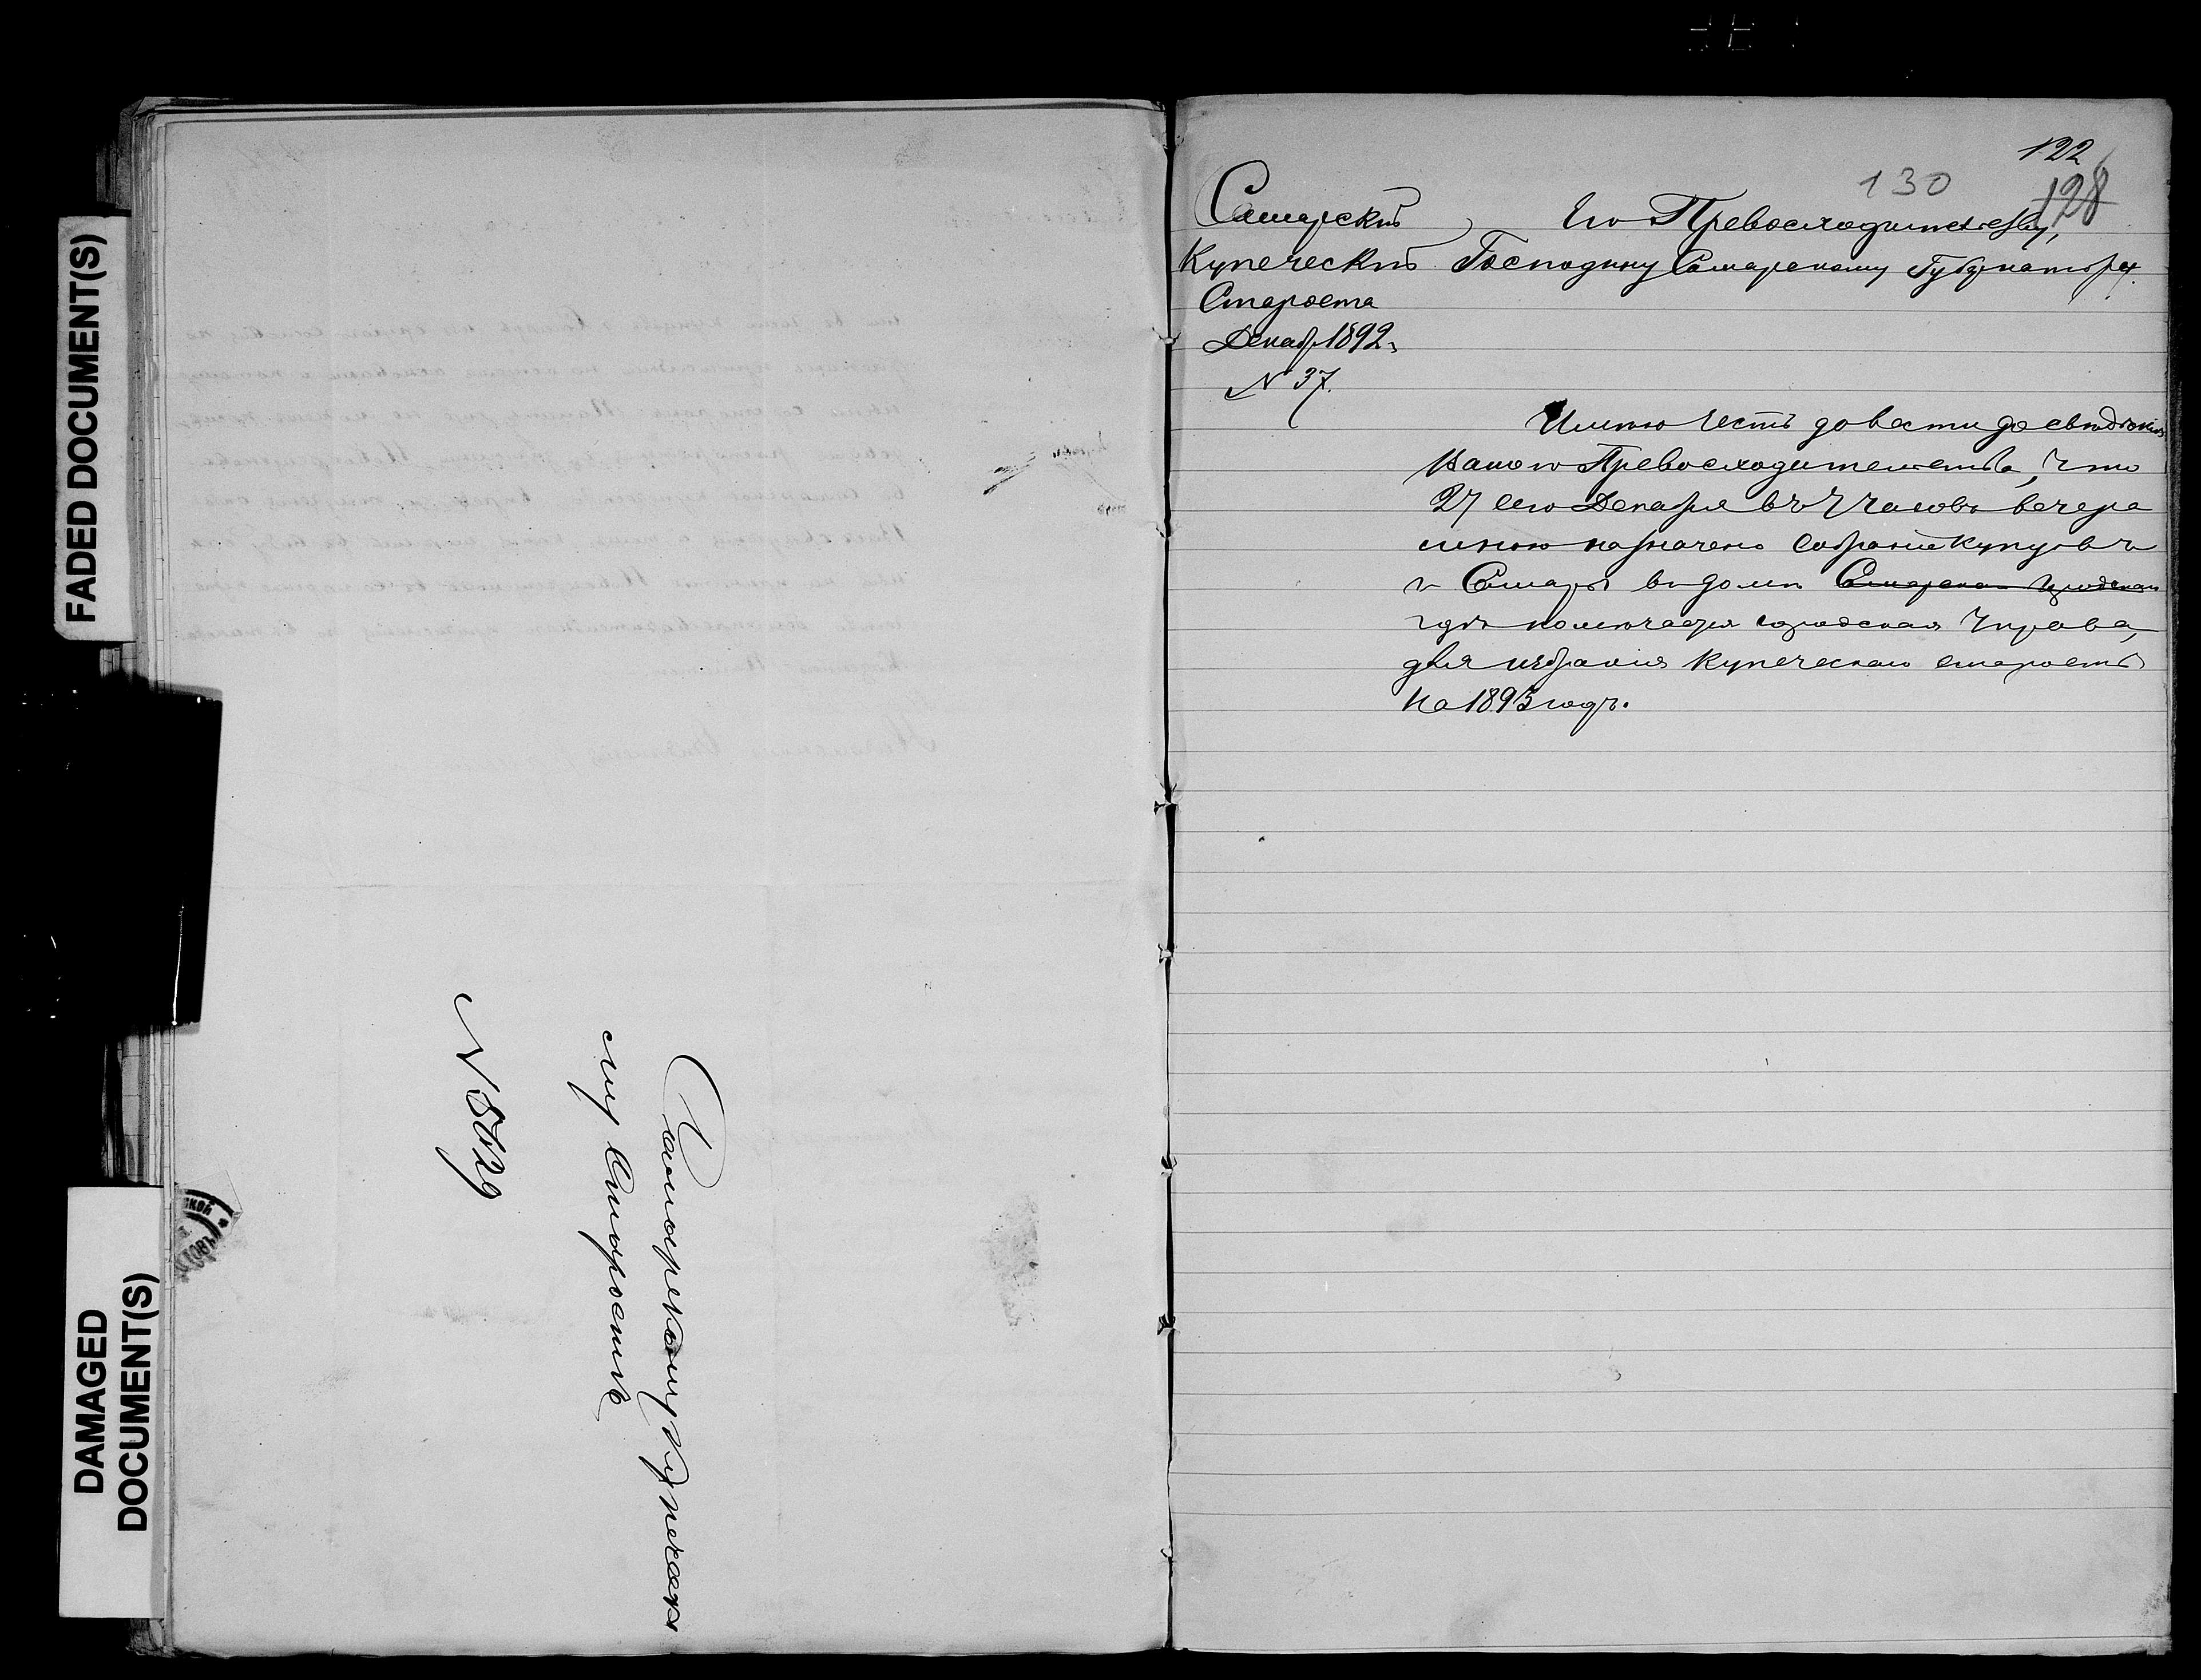 FADED DOCUMENT(S)
DAMAGED
DOCUMENT(S)
Самарскому Купеческо
му Старостѣ
N
122
130
128
Самарскій
Купеческій
Староста
Декабр 1892 г.
N 37.
Его Превосходительству,
Господину Самарскому Губернатору.
Имѣю честь довести до свѣдѣнія
Вашего Превосходительства, что
27 сего Декабря въ 7 часовъ вечера
мною назначено собраніе купцовъ
г. Самары въ домѣ Самарская городская
гдѣ помѣщается городская Управа,
для избранія купеческаго старосты
на 1893 годъ.